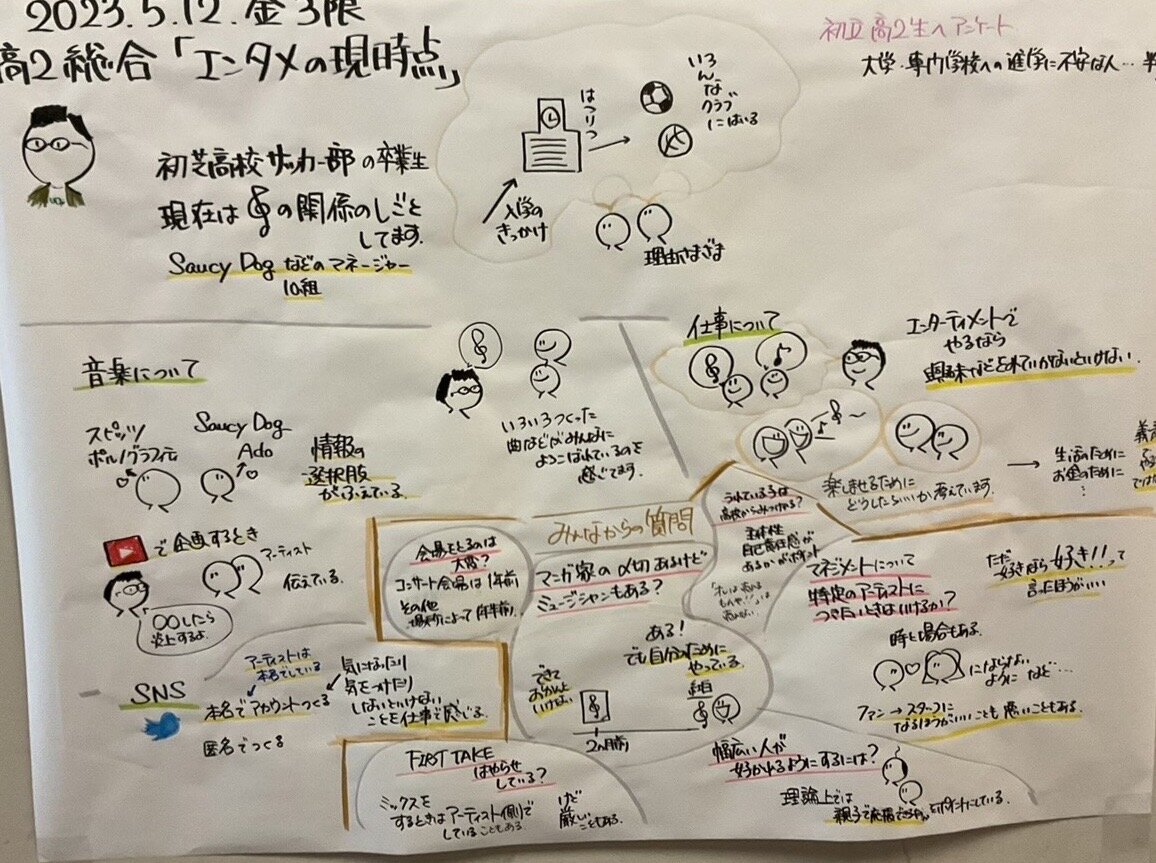 2023.5.12.金3限
高2総合「エンタメの現時点」
初芝高校サッカー部の卒業生
現在は の関係のしごと
してます.
Saucy Dogなどのマネージャー
10組
はつりつ
いろんな
クラブ
にはいる
入学の
きっかけ
理由さまざま
初立高2生へアンケート
大学・専門学校への進学に不安な人…
音楽について
スピッツ
ポルノグラフィティ
Saucy Dog
Ado
情報の
選択肢
がふえている.
いろいろつくった
曲などがみんなに
よろこばれているのを
感じてます.
で企画するとき
アーティスト
伝えている.
〇〇したら
炎上するよ.
SNS
アーティストは
本名でしている
本名でアカウントつくる
匿名でつくる
気になったり
気をつけたり
しないといけない
ことを仕事で感じる.
仕事について
エンターティメントで
やるなら
興味などとを忘れていかないといけない.
楽しませるために
どうしたらいいか考えています.
生活のために
お金のために
⋮
みんなからの質問
会場をとるのは
大変?
コンサート会場は1年前
その他
場所によって(半年前).
マンガ家の〆切あるけど
ミュージシャンもある?
ある!
でも自分のために
やっている.
できて
おかんと
いけない
2ヶ月前
うれている子は
高校からみつけれる?
主体性
自己責任感が
あるかがポイント
マネジメントについて
特定のアーティストに
つきたいときはいけるか?
ただ
好きなら好き!!って
言ったほうがいい
時と場合もある.
にはならない
ように など…
ファン→スタッフに
なるほうがいいことも悪いこともある.
FIRST TAKE
はやらせ
している?
ミックスを
するときはアーティスト側で
していることもある
けど
厳しい
こともある.
幅広い人が
好かれるようにするには?
理論上では
親子で応援できるかをポイントにしている.